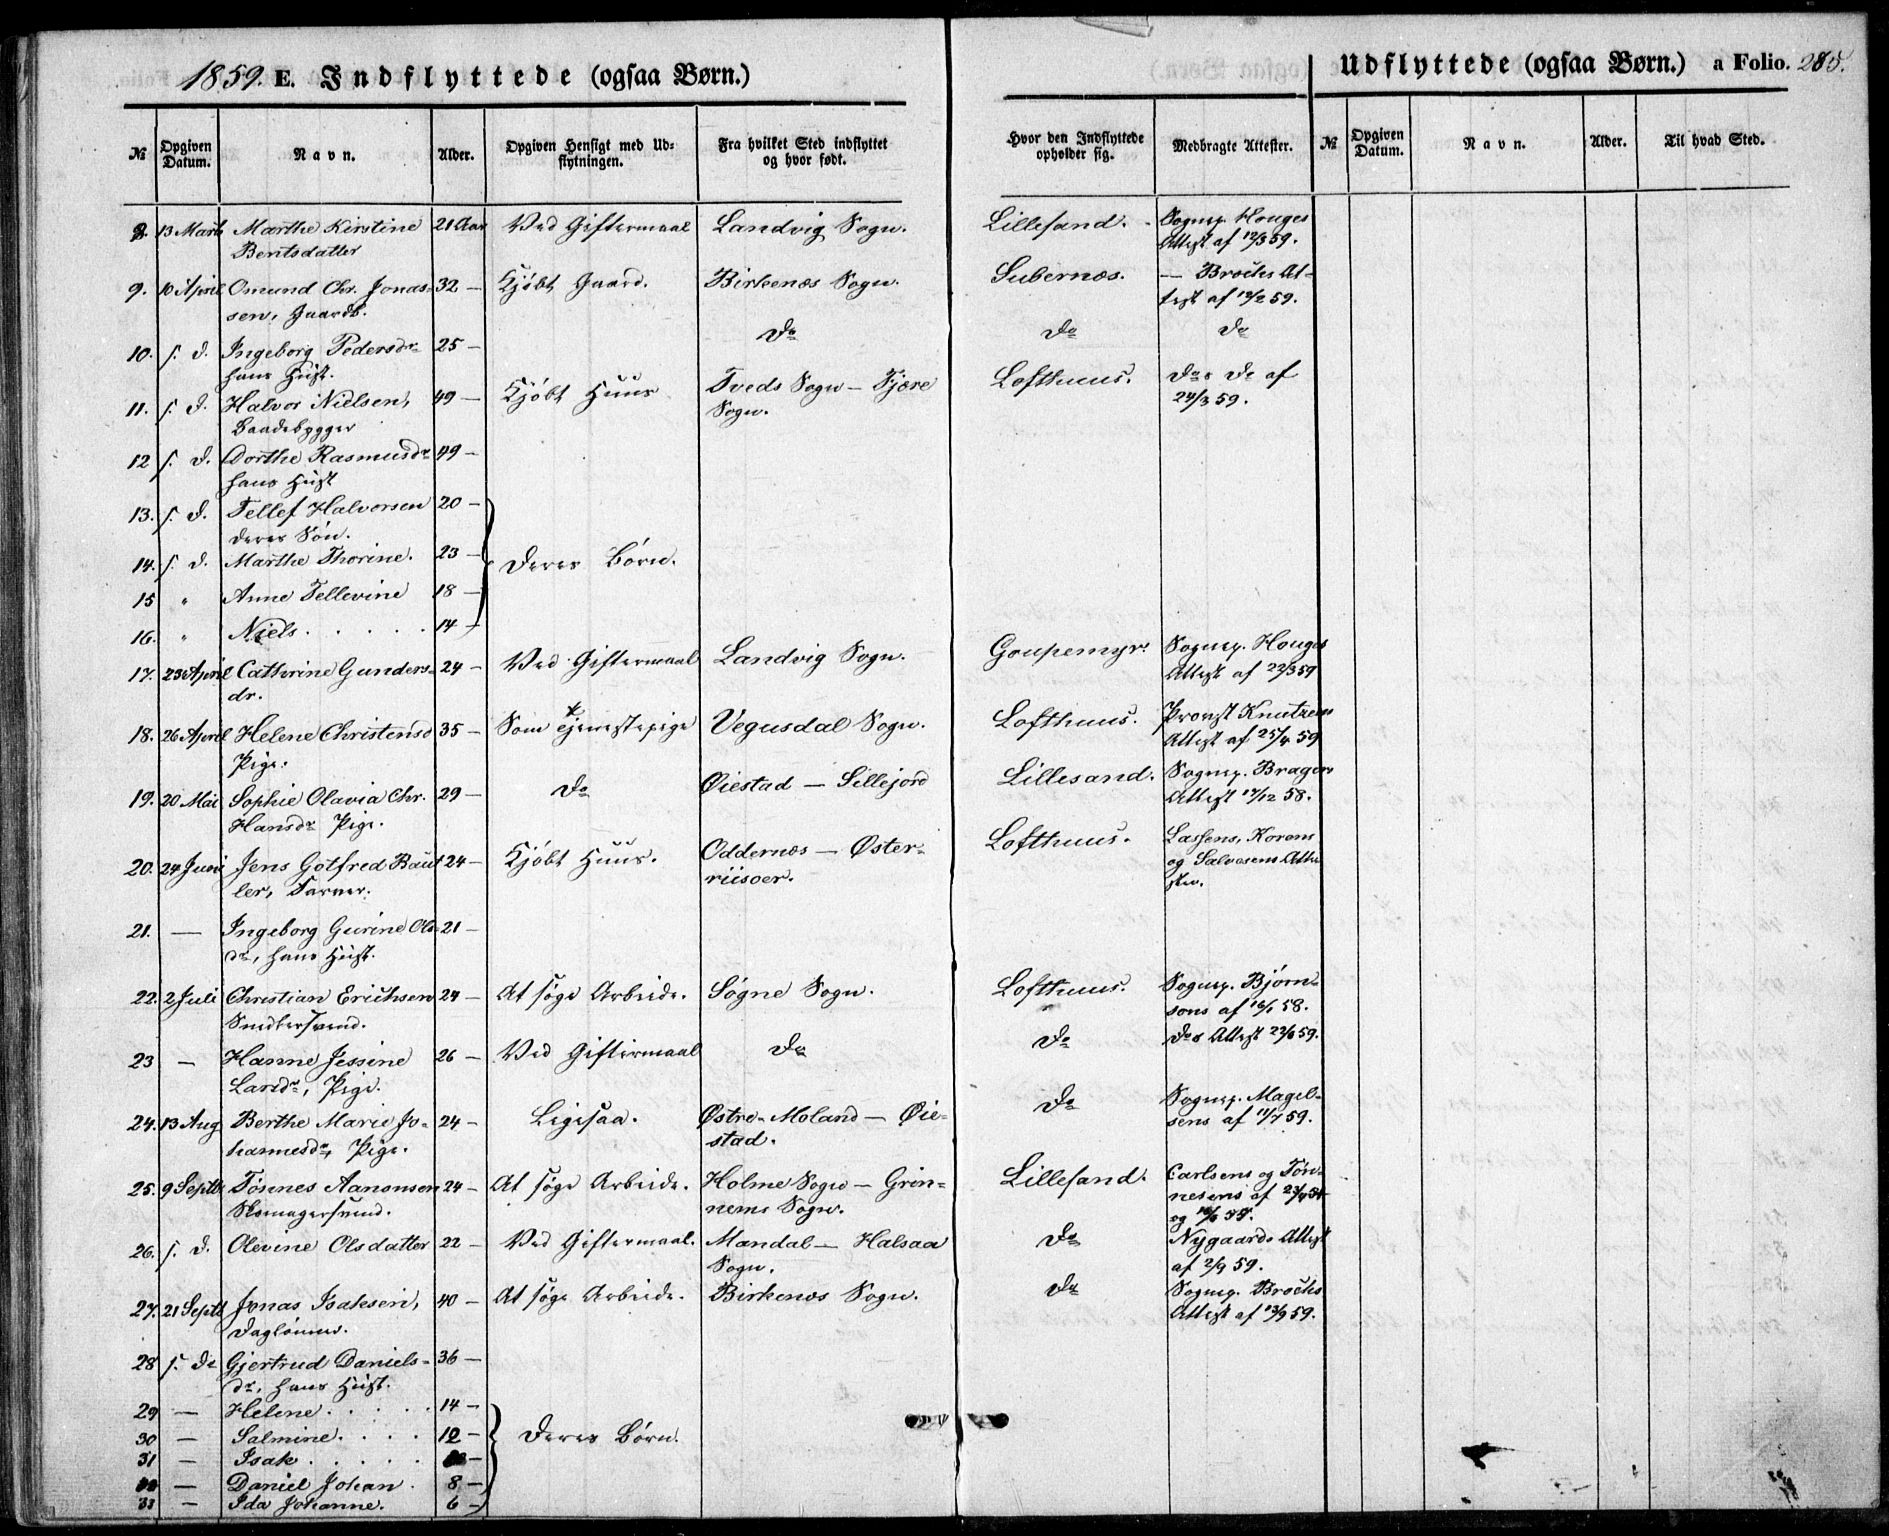 1859. E. Indflyttede (ogsaa Børn.)
Udflyttede (ogsaa Børn.) a Folio. 285.
№ Opgiven Datum. Navn. Alder. Opgiven Hensigt med Udflytningen. Fra hvilket Sted indflyttet og hvor født. Hvor den Indflyttede opholder sig. Medbragte Attester. № Opgiven Datum. Navn. Alder. Til hvad Sted.
8. 13 Marts Marthe Kirstine 21 Aar Ved Giftermaal Landvig Sogn. Lillesand. Sognep. Houges
Bentsdatter Attest af 12/3 59.
9. 10 April Omund Chr. Jonas- 32 — Kjøbt Gaard. Birkenæs Sogn. — Brochs At-
sen, Gaardb. test af 12/2 59.
10. s. d. Ingeborg Pedersdr 25 — do do do
hans Hust.
11. s. d. Halvor Nielsen, 49 — Kjøbt Huus Tveds Sogn — Tjære Lofthuus. dos do af
Baadebygger Sogn. 24/3 59.
12 s. d. Dorthe Rasmusdr 49 —
hans Hust
13. s. d. Tellef Halvorsen 20 —
deres Søn.
14. s. d. Marthe Thorine. 23 — deres Børn.
15 " Anne Tellevine 18 —
16. " Niels . . . . . 14 —
17. 23 April Cathrine Gunders- 24 — Ved Giftermaal Landvig Sogn. Goupemyr. Sognep. Houges
dr. Attest af 22/3 59
18. 26 April Helene Christensd 35 — Som Tjenestepige Vegusdal Sogn. Lofthuus. Provst Knutzens
Pige. Attest af 25/4 59
19. 20 Mai Sophie Olavia Chr. 29 — do Øiestad — Sillejord Lillesand. Sognep. Brages
Hansdr Pige. Attest 17/12 58.
20. 24 Juni Jens Gotfred Baut- 24 — Kjøbt Huus. Oddernæs — Øster- Lofthuus. Lassens, Korens
ler, Farver. riisoer. og Salvesens Atte
ster.
21. — Ingeborg Gurine Ols- 21 —
dr, hans Hust.
22. 2 Juli Christian Erichsen 24 — At søge Arbeide. Søgne Sogn. Lofthuus. Sognep. Bjørn-
Smedersvend. sons af 16/1 58.
23 — Hanne Jessine 26 — Ved Giftermaal do do dos Attest 22/6 59.
Larsdr, Pige.
24. 13 Aug Berthe Marie Jo- 24 — Ligesaa. Østre-Moland — Øie- do Sognep. Magel-
hannesdr, Pige. stad. sens af 11/7 59.
25. 9 Septb Tønnes Aanonsen 24 — At søge Arbeide. Holme Sogn — Grin- Lillesand. Carlsens og Tøn-
Skomagersvend. nems Sogn. nesens af
og
26. s. d. Olevine Olsdatter 22 — Ved Giftermaal. Mandal — Halsaa do Nygaards Attest
Sogn. af 2/9 59.
27. 21 Septb Jonas Isaksen, 40 — At søge Arbeide. Birkenæs Sogn. do Sognep. Brochs
Daglønner. Attest af 13/9 59.
28 s. d. Gjertrud Daniels- 36 —
dr, hans Hust.
29 — Helene . . . . . 14 —
30 — Salmine . . . . 12 — deres Børn.
31 — Isak . . . . .
— Daniel Johan . 8 —
33 — Ida Johanne. 6 —